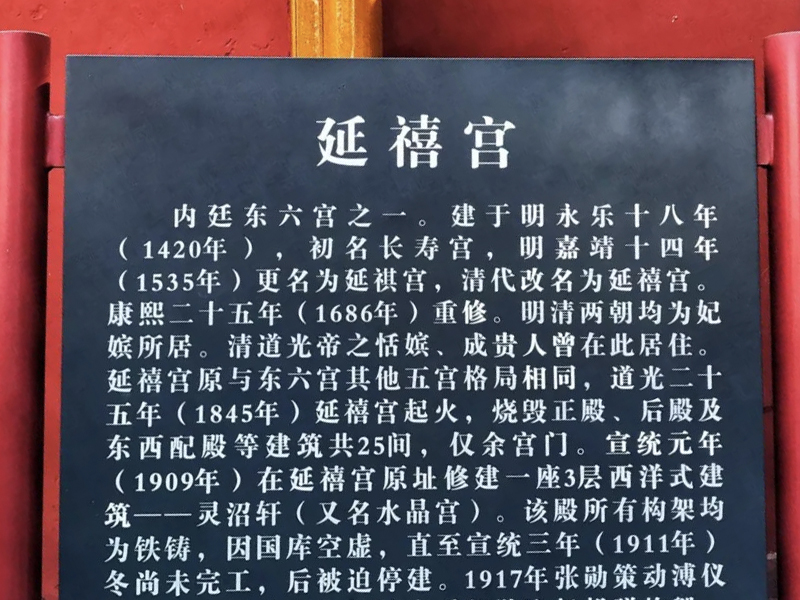 延禧宫
内廷东六宫之一。建于明永乐十八年
（1420年），初名长寿宫，明嘉靖十四年
（1535年）更名为延祺宫，清代改名为延禧宫。
康熙二十五年（1686年）重修。明清两朝均为妃
嫔所居。清道光帝之恬嫔、成贵人曾在此居住。
延禧宫原与东六宫其他五宫格局相同，道光二十
五年（1845年）延禧宫起火，烧毁正殿、后殿及
东西配殿等建筑共25间，仅余宫门。宣统元年
（1909年）在延禧宫原址修建一座3层西洋式建
筑——灵沼轩（又名水晶宫）。该殿所有构架均
为铁铸，因国库空虚，直至宣统三年（1911年）
冬尚未完工，后被迫停建。1917年张勋策动溥仪